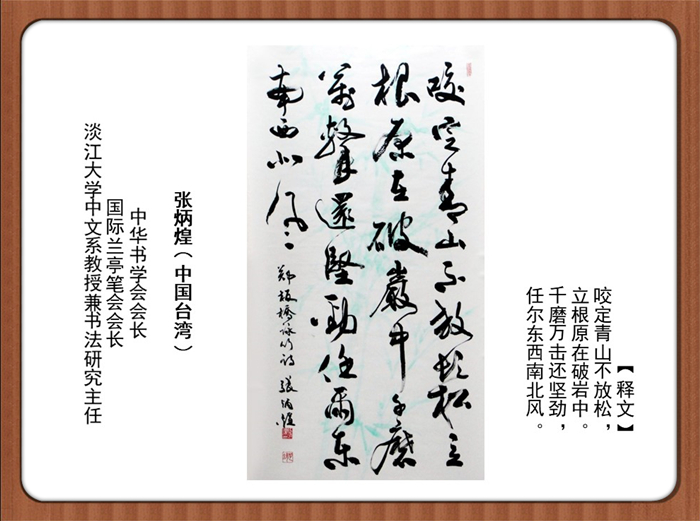 【释文】
咬定青山不放松，
立根原在破岩中。
千磨万击还坚劲，
任尔东西南北风。
咬定青山不放鬆立
根原在破巖中千磨
萬擊還堅勁任爾東
南西北風
鄭板橋詠竹詩 張炳煌
张炳煌（中国台湾）
中华书学会会长
国际兰亭笔会会长
淡江大学中文系教授兼书法研究主任